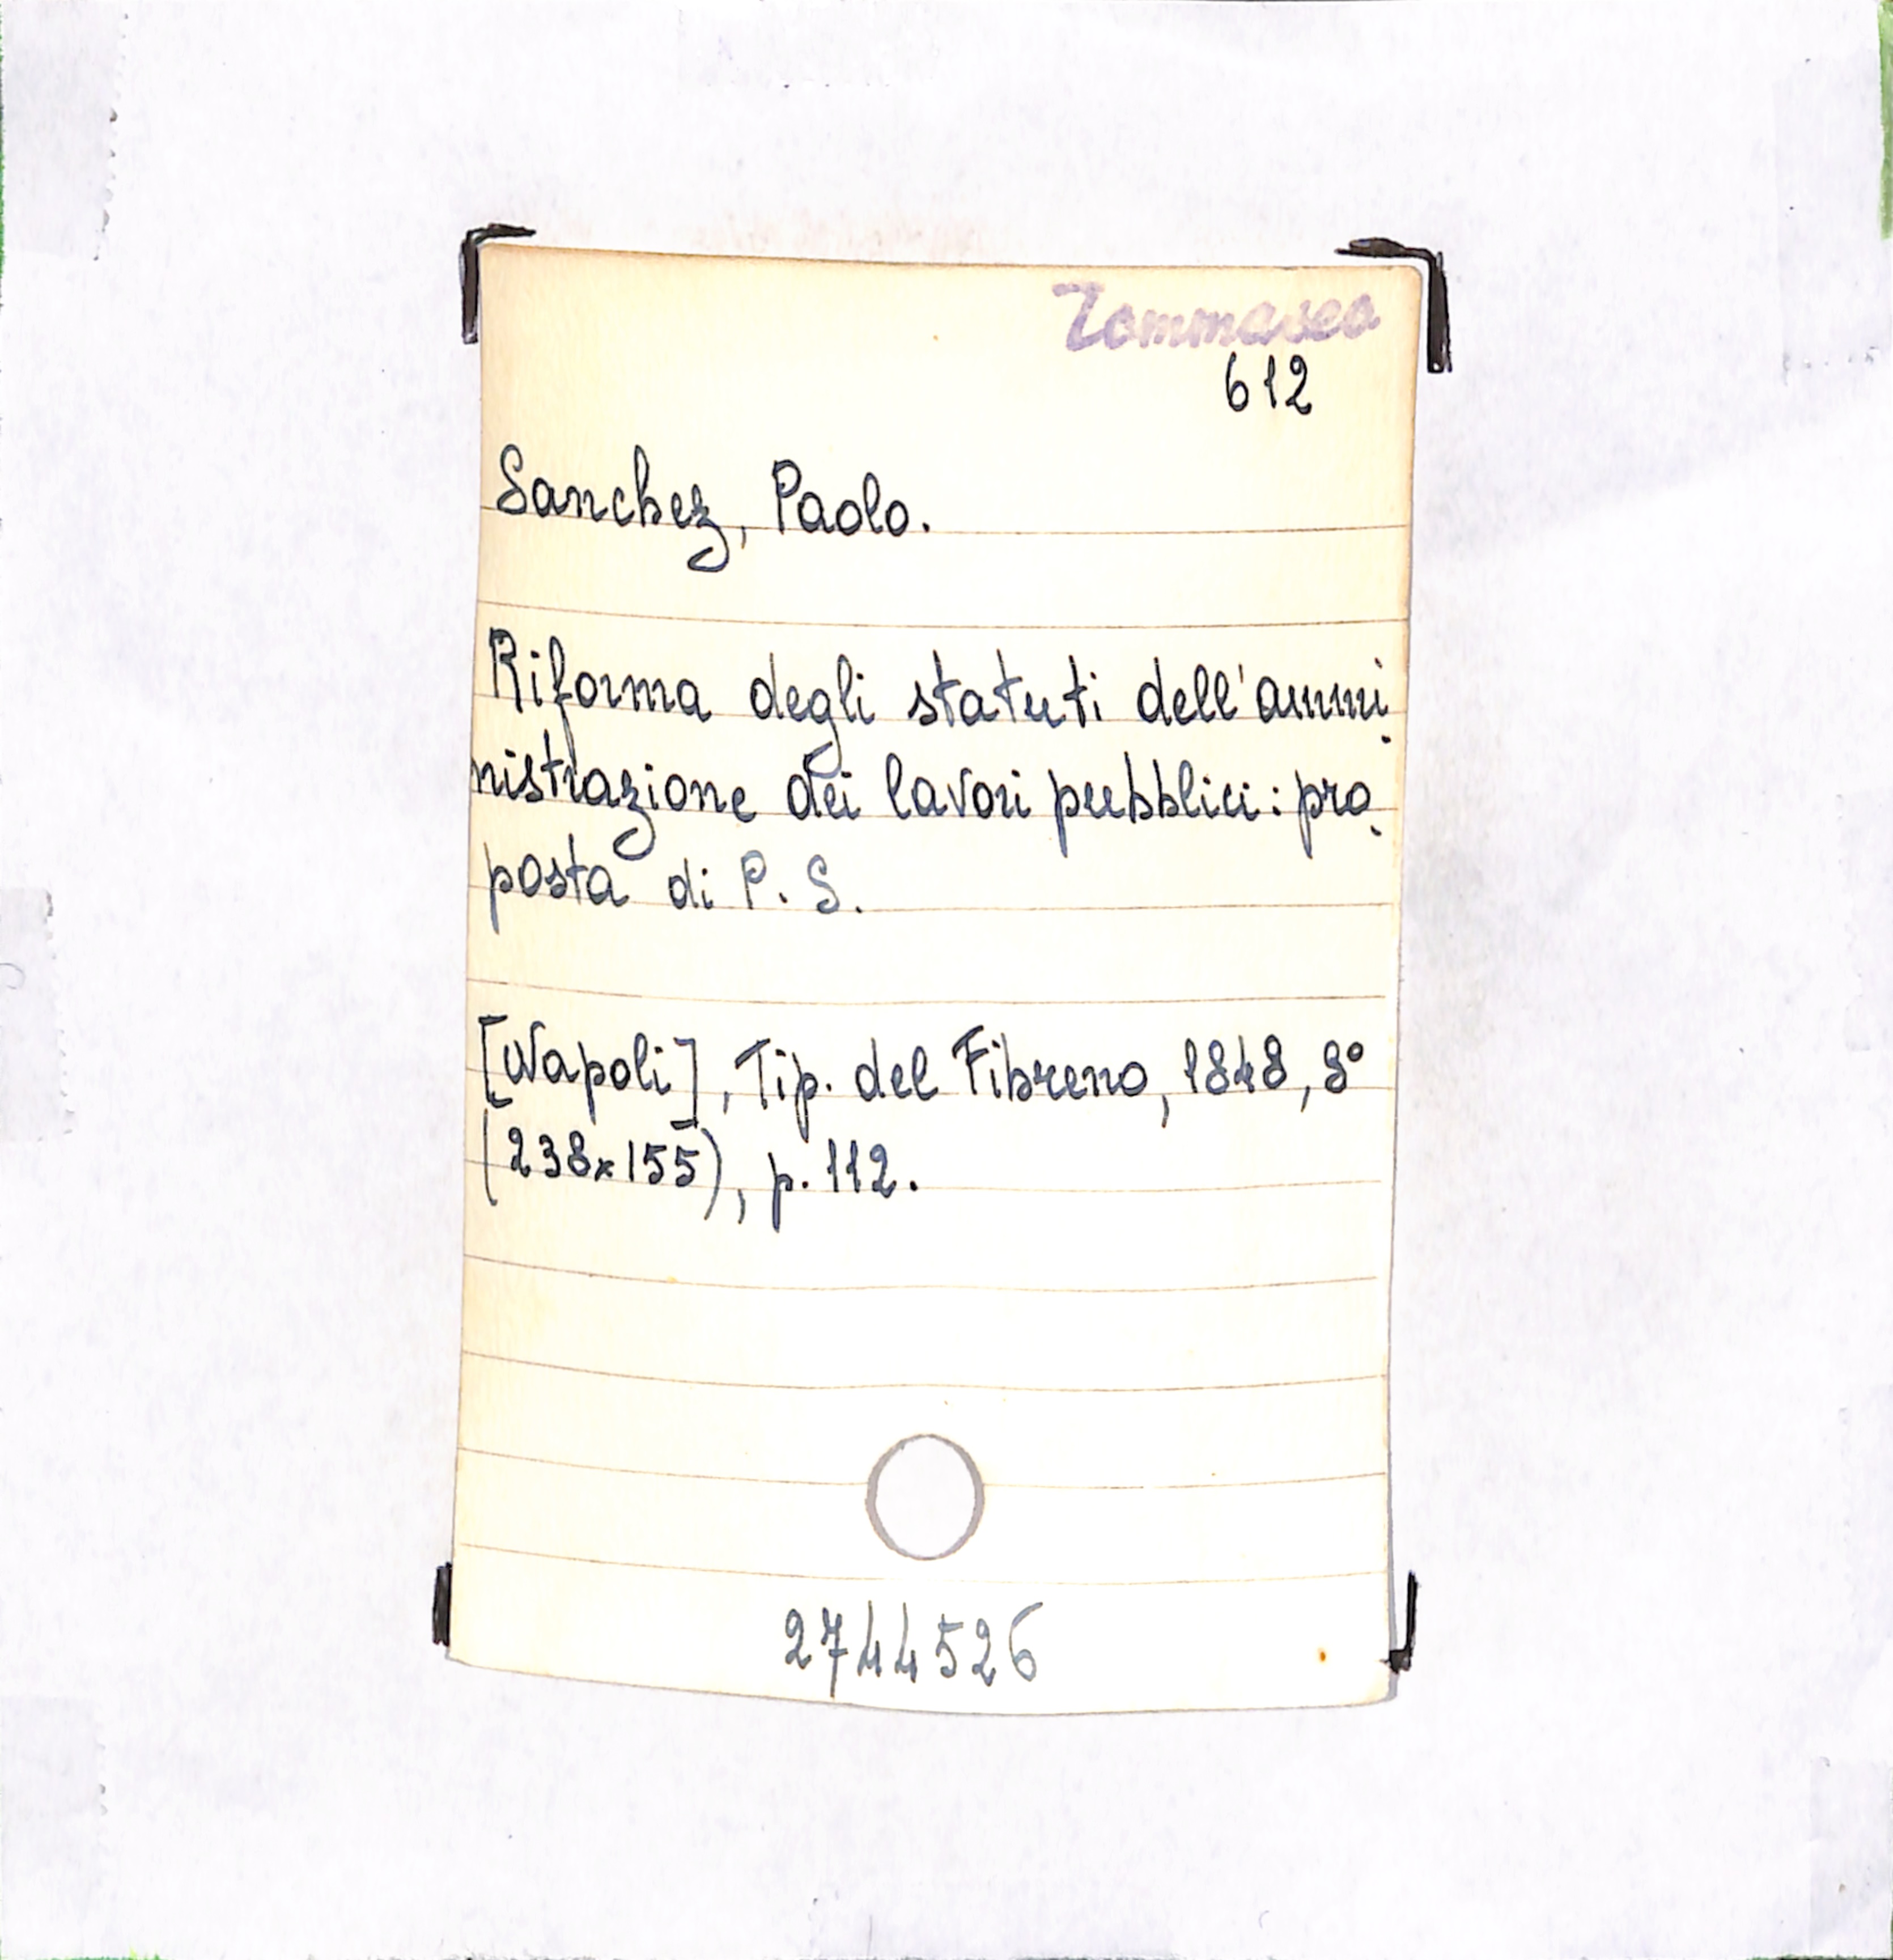 Tommaseo
612
Sanchez, Paolo.
Riforma degli statuti dell'ammi-
nistrazione dei lavori pubblici: pro-
posta di P. S.
[Napoli], Tip. del Fibreno, 1848, 8°
(238x155), p. 112.
2744526